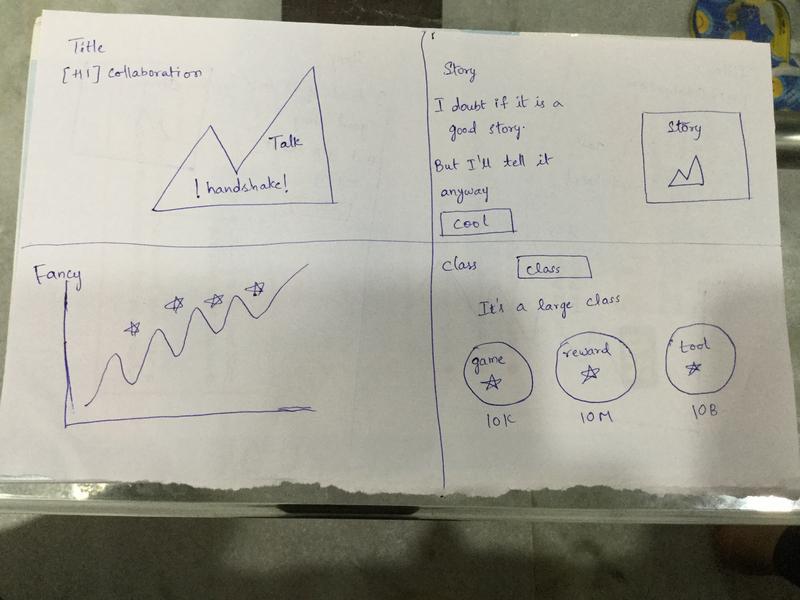 Title
[H1] Collaboration
Talk
! handshake!
Story
I doubt if it is a
good story.
But I'll tell it
anyway
cool
Story
Fancy
Class
class
It's a large class
game
reward
tool
10K
10M
10B